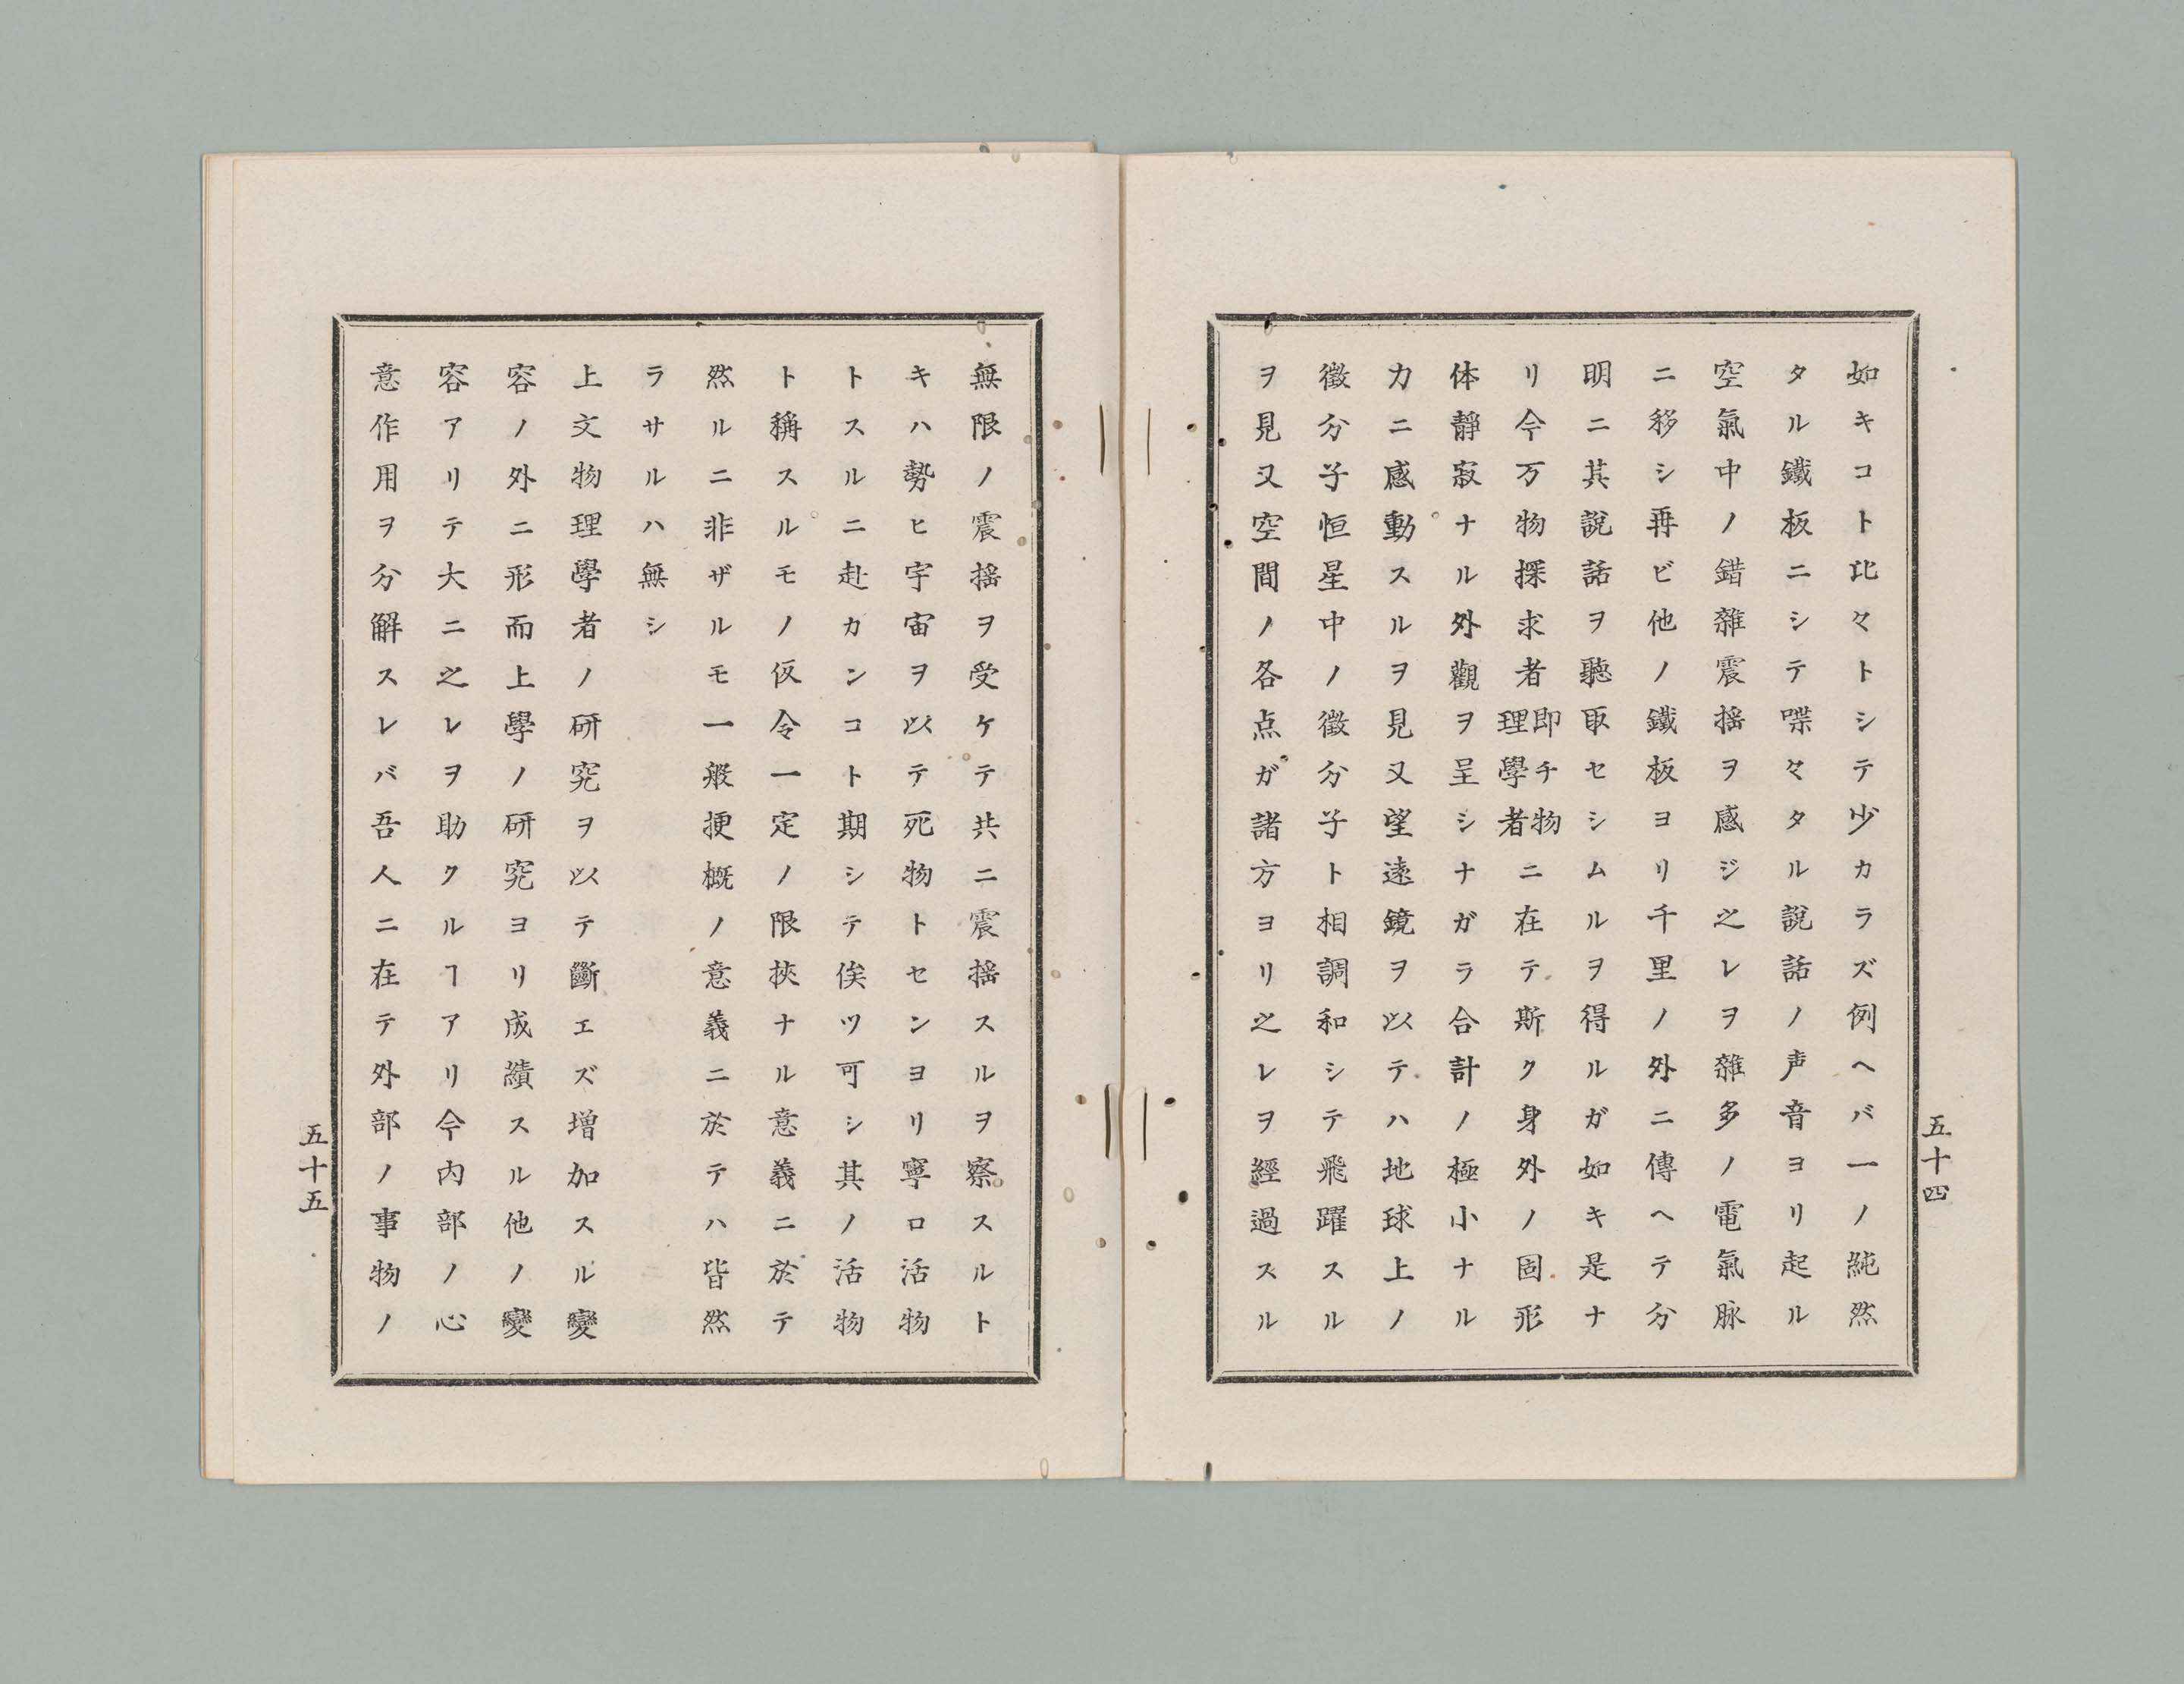 如キコト比々トシテ少カラズ例ヘバ一ノ純然
タル鐵板ニシテ喋々タル說話ノ声音ヨリ起ル
空氣中ノ錯雜震搖ヲ感ジ之レヲ雜多ノ電氣脉
ニ移シ再ビ他ノ鐵板ヨリ千里ノ外ニ傳ヘテ分
明ニ其說話ヲ聽取セシムルヲ得ルガ如キ是ナ
リ今万物探求者即チ物理學者ニ在テ斯ク身外ノ固形
体靜寂ナル外觀ヲ呈シナガラ合計ノ極小ナル
力ニ感動スルヲ見又望遠鏡ヲ以テハ地球上ノ
微分子恒星中ノ微分子ト相調和シテ飛躍スル
ヲ見又空間ノ各点ガ諸方ヨリ之レヲ經過スル
五十四
無限ノ震搖ヲ受ケテ共ニ震搖スルヲ察スルト
キハ勢ヒ宇宙ヲ以テ死物トセンヨリ寧ロ活物
トスルニ赴カンコト期シテ俟ツ可シ其ノ活物
ト稱スルモノ仮令一定ノ限挾ナル意義ニ於テ
然ルニ非ザルモ一般梗概ノ意義ニ於テハ皆然
ラサルハ無シ
上文物理學者ノ研究ヲ以テ斷エズ增加スル變
容ノ外ニ形而上學ノ研究ヨリ成績スル他ノ變
容アリテ大ニ之レヲ助クルヿアリ今內部ノ心
意作用ヲ分解スレバ吾人ニ在テ外部ノ事物ノ
五十五